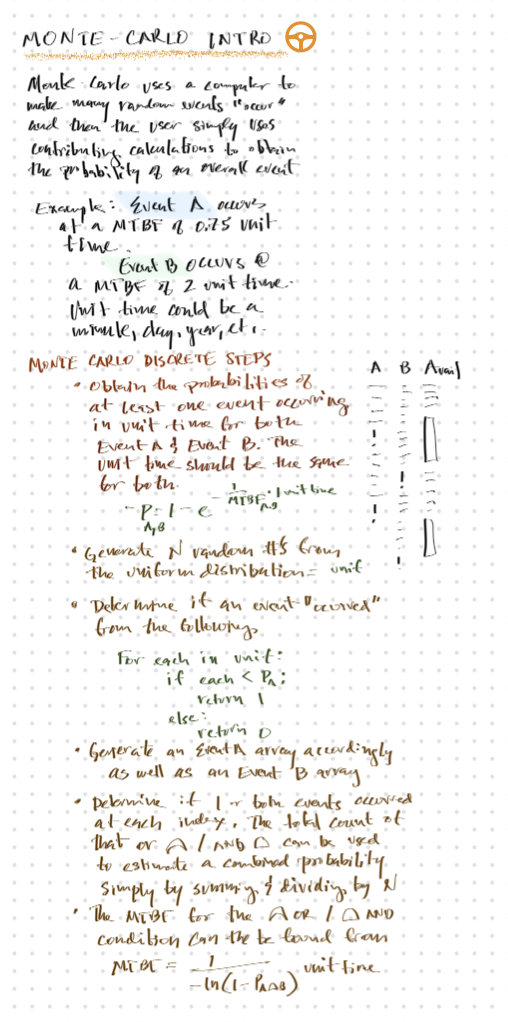 MONTE-CARLO INTRO
Monte Carlo uses a computer to
make many random events "occur"
and then the user simply uses
contributing calculations to obtain
the probability of an overall event
Example: Event A occurs
at a MTBF of 0.75 unit
time.
Event B occurs @
a MTBF of 2 unit time.
Unit time could be a
minute, day, year, etc.
MONTE CARLO DISCRETE STEPS
A B Avail
• Obtain the probabilities of
at least one event occurring
in unit time for both
Event A & Event B. The
unit time should be the same
for both.
- P_{A,B} = 1 - e^{-\frac{1}{MTBF_{A,B}} \cdot 1 unit time}
• Generate N random #'s from
the uniform distribution = unif
• Determine if an event "occurred"
from the following,
For each in unif:
if each < P_A:
return 1
else:
return 0
• Generate an Event A array accordingly
as well as an Event B array
• Determine if 1 or both events occurred
at each index. The total count of
that OR / AND can be used
to estimate a combined probability
simply by summing & dividing by N
• The MTBF for the OR / AND
condition can the be found from
MTBF = \frac{1}{-ln(1 - P_{A∩B})} unit time